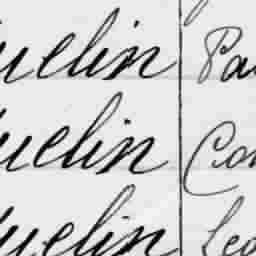 uelin Pa
uelin Con
uelin Leo